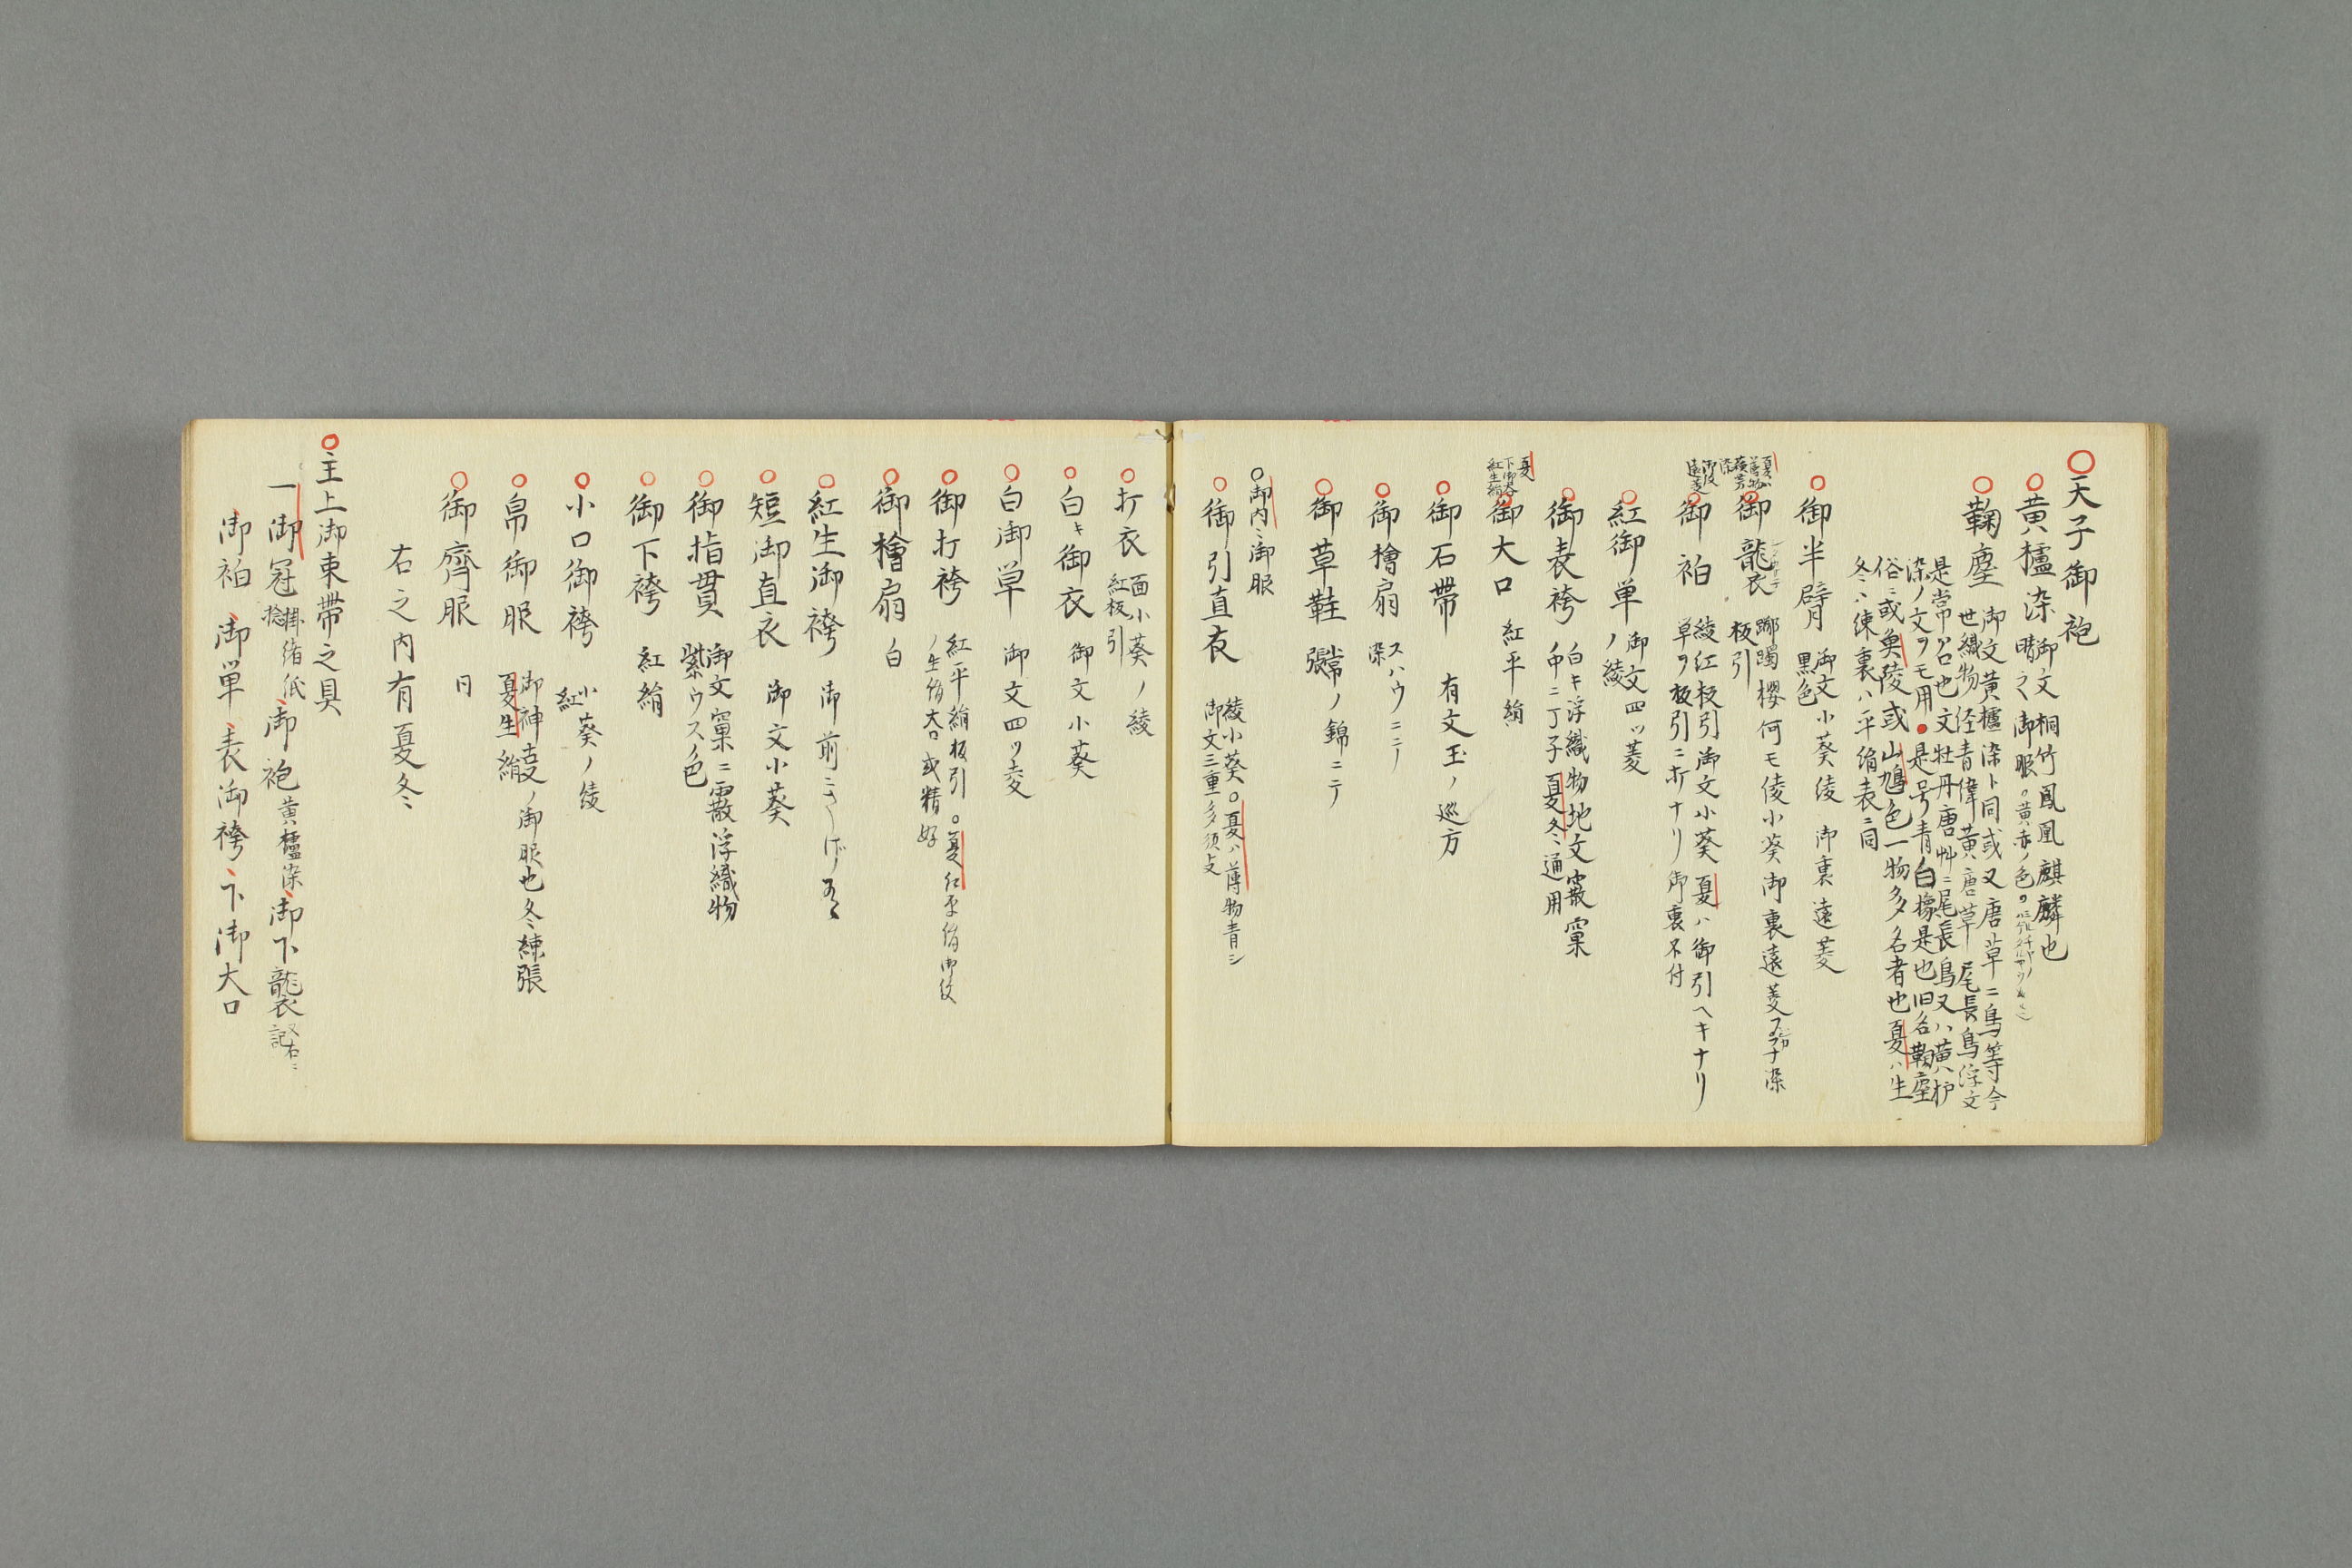 天子御袍
黄櫨染 御文 桐竹鳳凰麒麟也
晴之御服。黄赤ノ色
麴塵 御文黄櫨染ト同或又唐草ニ鳥等今
世織物 経青偉黄 唐草尾長鳥浮文
是常ノ召也 文牡丹唐艸ニ尾長鳥又ハ黄ハ枦
染ノ文ヲモ用 是号青白橡是也旧名麴塵
俗ニ或魚陵或山鳩色一物多名者也夏ハ生
冬ハ練裏ハ平絹表ニ同
御半臂 御文小葵綾 御裏遠菱
黒色
御襲 躑躅櫻何モ綾小葵御裏遠菱
板引
御衵 綾紅板引御文小葵 夏ハ御引ヘキナリ
単ヲ板引ニ示ナリ御裏不付
紅御単 御文四ツ菱
ノ綾
御表袴 白キ浮織物地文霰窠
中ニ丁子 夏冬通用
夏
下御大口
紅生絹
御大口 紅平絹
御石帶 有文玉ノ巡方
御檜扇 スハウニニ
染
御草鞋 常ノ錦ニテ
張
御内々御服
御引直衣 綾小葵。夏ハ薄物青シ
御文三重多須支
打衣 面小葵ノ綾
紅板引
白キ御衣 御文小葵
白御単 御文四ツ菱
御打袴 紅平絹板引。夏紅平絹
ノ生絹大口或精好
御檜扇 白
紅生御袴 御前
短御直衣 御文小葵
御指貫 御文窠ニ霰浮織物
紫ウスノ色
御下袴 紅絹
小口御袴 小葵ノ綾
紅
帛御服 御神事ノ御服也冬練張
夏生絹
御齊服 同
右之内有夏冬
主上御束帶之具
一御冠 掛緒紙 御袍 黄櫨染 御下襲 又右ニ
捻 記
御衵 御単 表御袴 下御大口